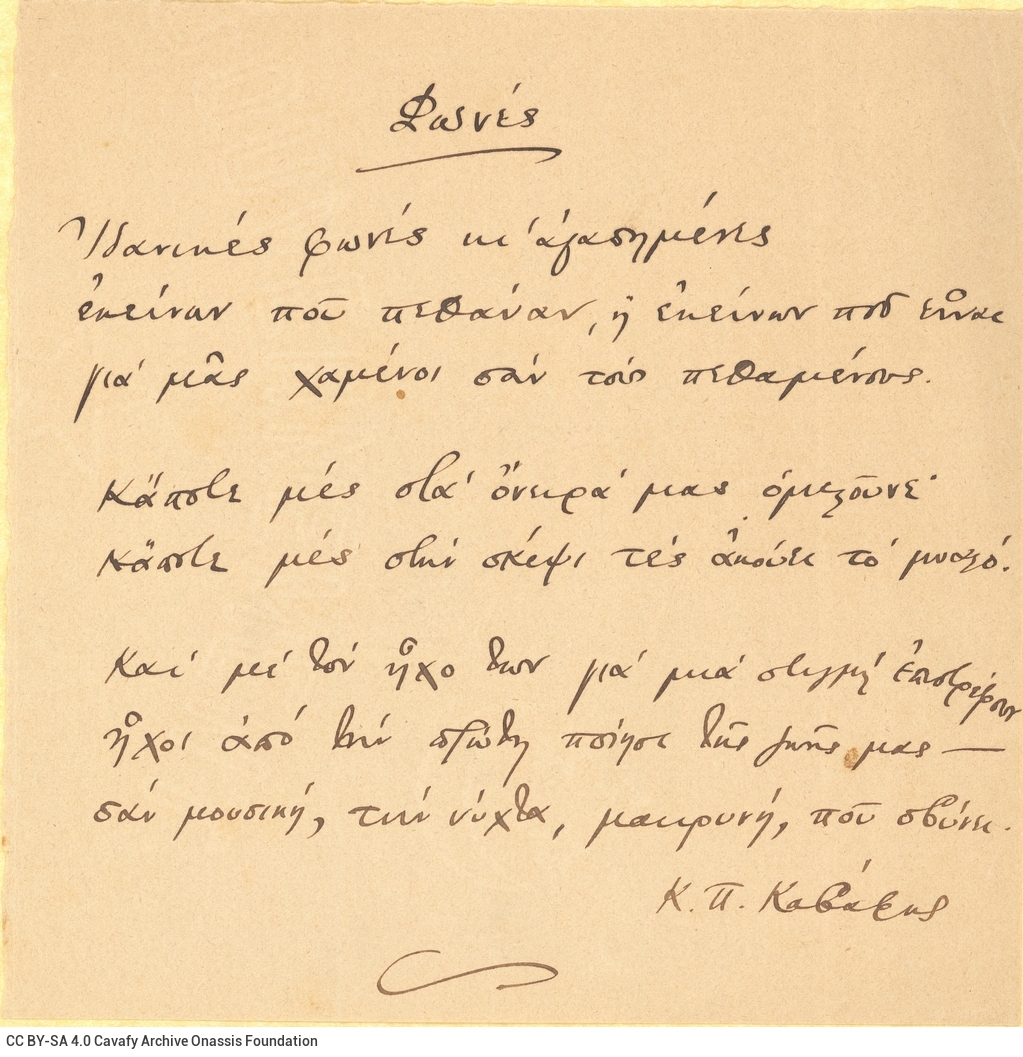 Φωνές
Ἰδανικές φωνές κι' ἀγαπημένες
ἐκείνων πού πεθάναν, ἤ ἐκείνων πού εἶναι
γιά μᾶς χαμένοι σάν τούς πεθαμένους.
Κάποτε μές στά ὄνειρά μας ὁμιλοῦνε·
κάποτε μές στήν σκέψι τές ἀκούει τό μυαλό.
Καί μέ τόν ἦχο των γιά μιά στιγμή ἐπιστρέφουν
ἦχοι ἀπό τήν πρώτη ποίησι τῆς ζωῆς μας —
σάν μουσική, τήν νύχτα, μακρυνή, πού σβύνει.
Κ. Π. Καβάφης
CC BY-SA 4.0 Cavafy Archive Onassis Foundation